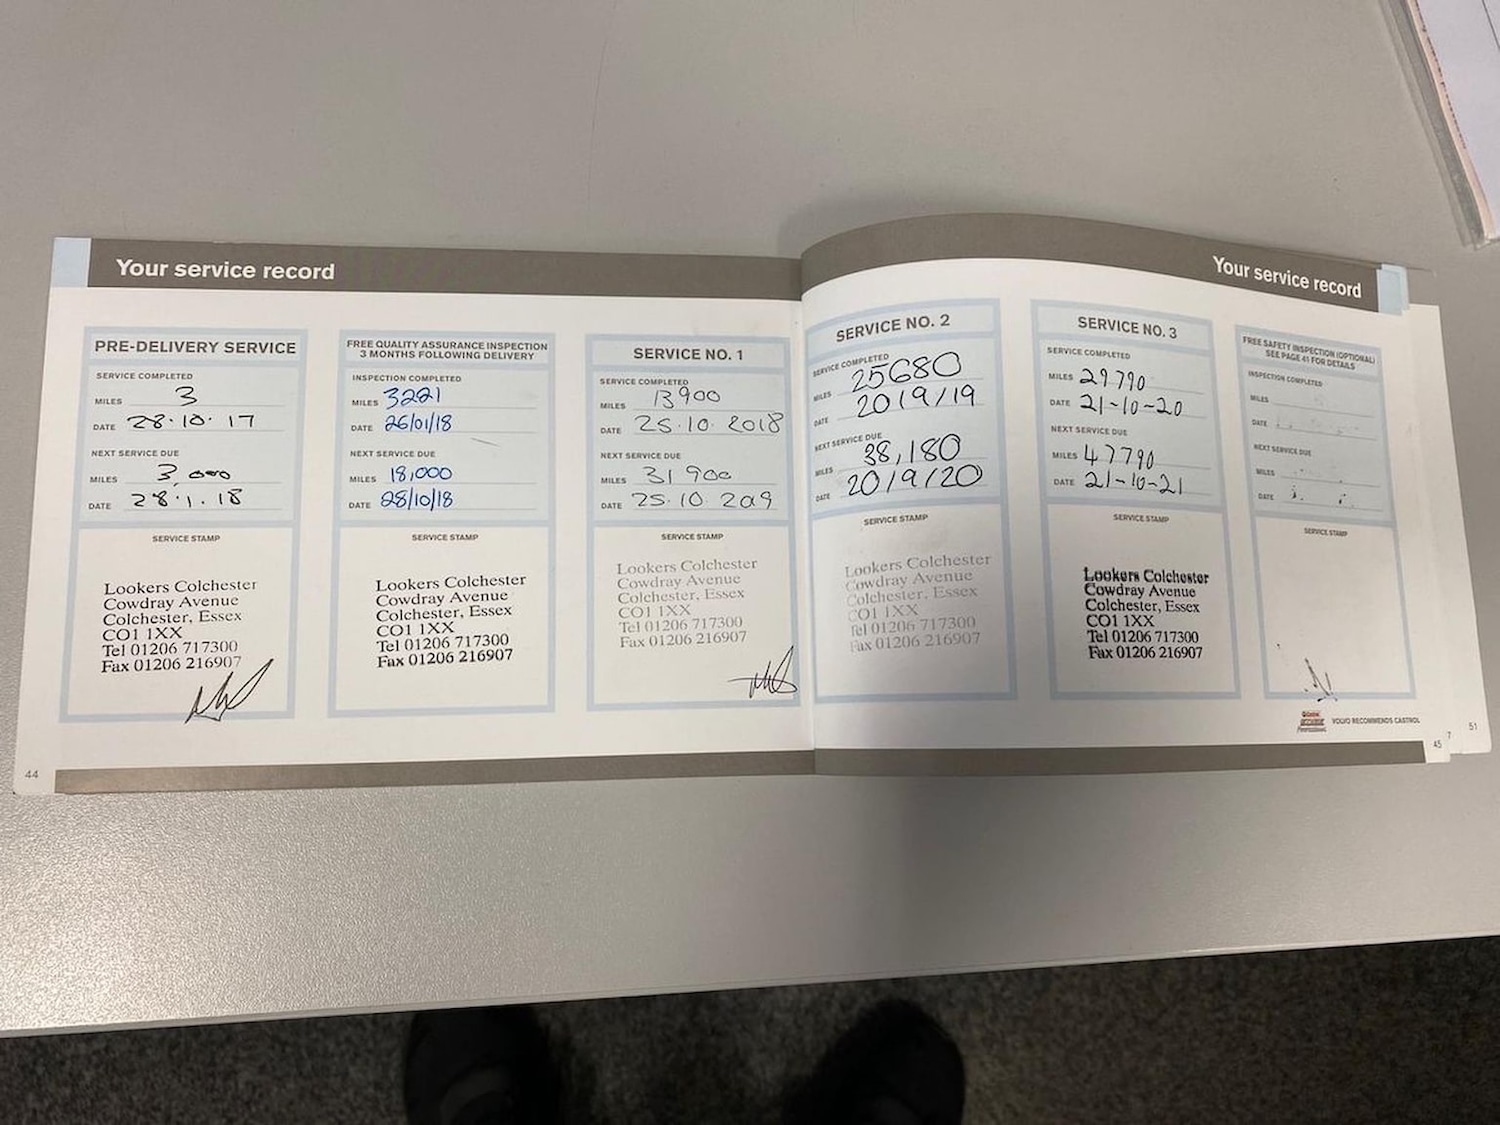 Your service record
PRE-DELIVERY SERVICE
SERVICE COMPLETED
MILES 3
DATE 28·10·17
NEXT SERVICE DUE
MILES 3,000
DATE 28·1·18
SERVICE STAMP
Lookers Colchester
Cowdray Avenue
Colchester, Essex
CO1 1XX
Tel 01206 717300
Fax 01206 216907
FREE QUALITY ASSURANCE INSPECTION
3 MONTHS FOLLOWING DELIVERY
INSPECTION COMPLETED
MILES 3221
DATE 26/01/18
NEXT SERVICE DUE
MILES 18,000
DATE 28/10/18
SERVICE STAMP
Lookers Colchester
Cowdray Avenue
Colchester, Essex
CO1 1XX
Tel 01206 717300
Fax 01206 216907
SERVICE NO. 1
SERVICE COMPLETED
MILES 13900
DATE 25·10·2018
NEXT SERVICE DUE
MILES 31900
DATE 25·10·2019
SERVICE STAMP
Lookers Colchester
Cowdray Avenue
Colchester, Essex
CO1 1XX
Tel 01206 717300
Fax 01206 216907
44
Your service record
SERVICE NO. 2
SERVICE COMPLETED
MILES 25680
DATE 20/9/19
NEXT SERVICE DUE
MILES 38,180
DATE 20/9/20
SERVICE STAMP
Lookers Colchester
Cowdray Avenue
Colchester, Essex
CO1 1XX
Tel 01206 717300
Fax 01206 216907
SERVICE NO. 3
SERVICE COMPLETED
MILES 29790
DATE 21-10-20
NEXT SERVICE DUE
MILES 47790
DATE 21-10-21
SERVICE STAMP
Lookers Colchester
Cowdray Avenue
Colchester, Essex
CO1 1XX
Tel 01206 717300
Fax 01206 216907
FREE SAFETY INSPECTION (OPTIONAL)
SEE PAGE 41 FOR DETAILS
INSPECTION COMPLETED
MILES
DATE
NEXT SERVICE DUE
MILES
DATE
SERVICE STAMP
Castrol
Professional
VOLVO RECOMMENDS CASTROL
45
7
51